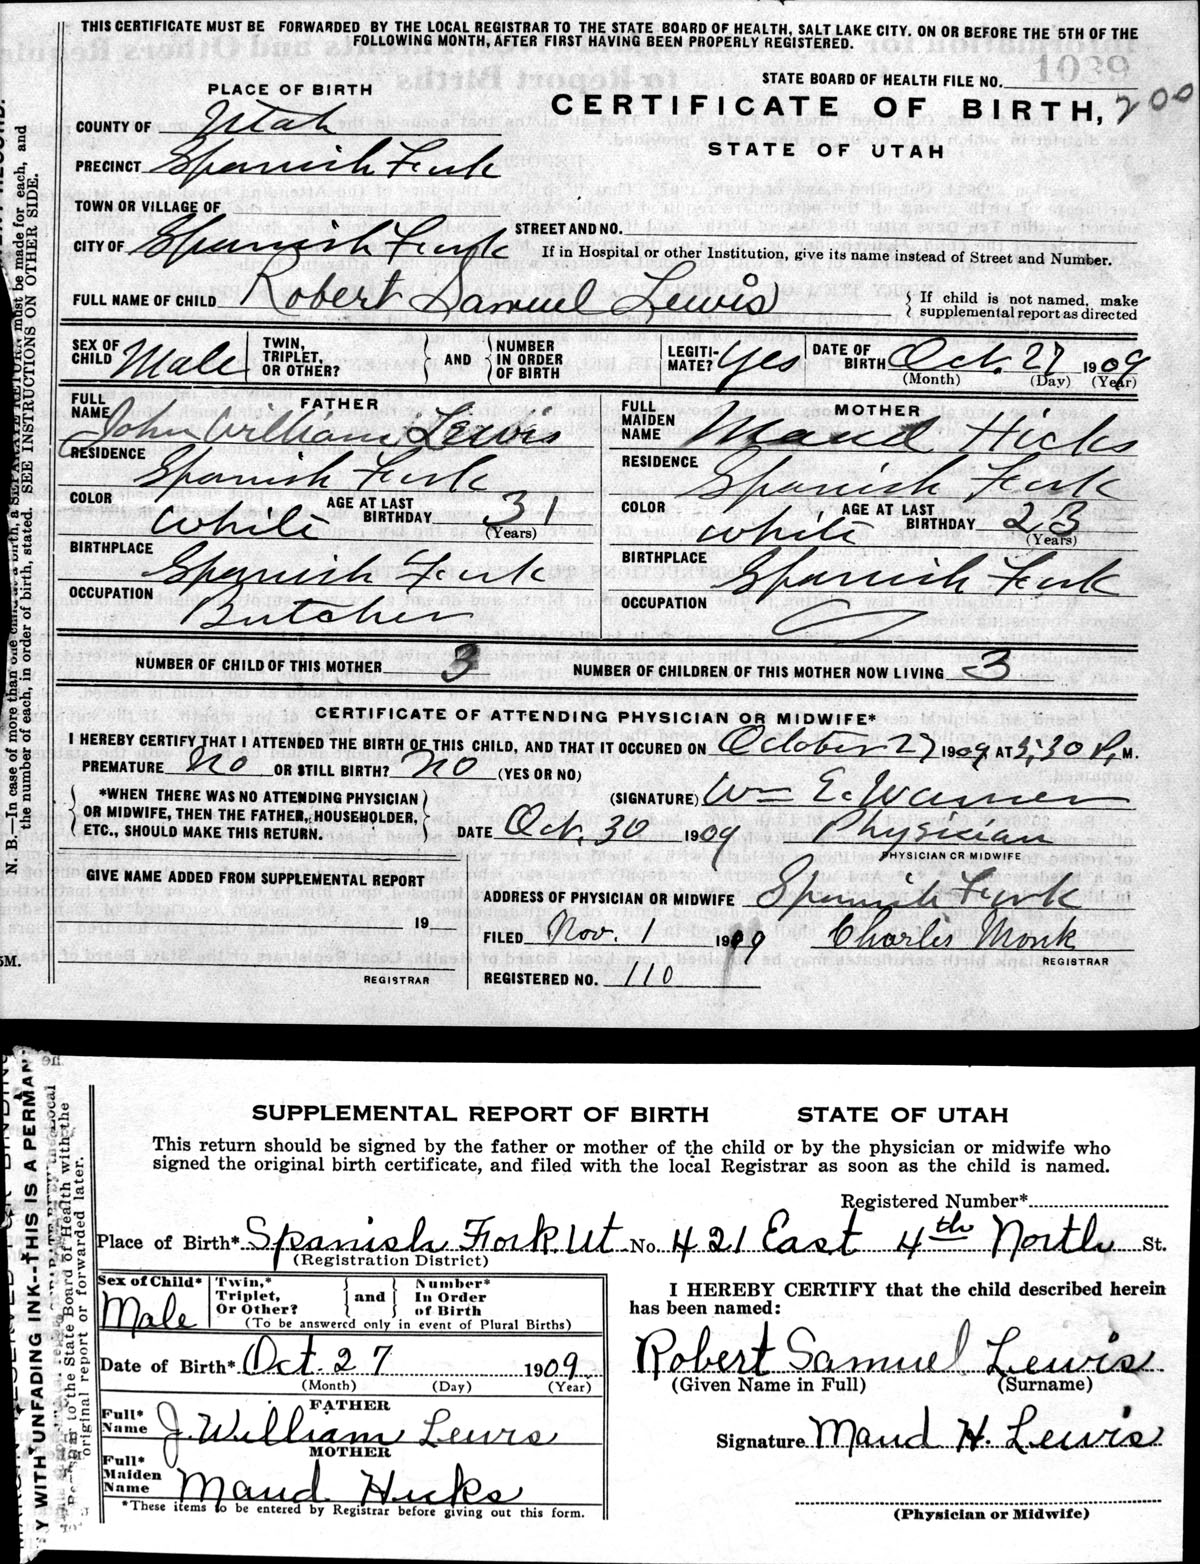 THIS CERTIFICATE MUST BE FORWARDED BY THE LOCAL REGISTRAR TO THE STATE BOARD OF HEALTH, SALT LAKE CITY, ON OR BEFORE THE 5TH OF THE
FOLLOWING MONTH, AFTER FIRST HAVING BEEN PROPERLY REGISTERED.
STATE BOARD OF HEALTH FILE NO. 1039
PLACE OF BIRTH
CERTIFICATE OF BIRTH, 200
STATE OF UTAH
COUNTY OF Utah
PRECINCT Spanish Fork
TOWN OR VILLAGE OF
CITY OF Spanish Fork STREET AND NO.
If in Hospital or other Institution, give its name instead of Street and Number.
FULL NAME OF CHILD Robert Samuel Lewis
If child is not named, make
supplemental report as directed
SEX OF CHILD Male TWIN, TRIPLET, OR OTHER? AND NUMBER IN ORDER OF BIRTH LEGITI-MATE? Yes DATE OF BIRTH Oct. 27 1909
(Month) (Day) (Year)
FATHER
FULL NAME John William Lewis
RESIDENCE Spanish Fork
COLOR White AGE AT LAST BIRTHDAY 31 (Years)
BIRTHPLACE Spanish Fork
OCCUPATION Butcher
MOTHER
FULL MAIDEN NAME Maud Hicks
RESIDENCE Spanish Fork
COLOR White AGE AT LAST BIRTHDAY 23 (Years)
BIRTHPLACE Spanish Fork
OCCUPATION
NUMBER OF CHILD OF THIS MOTHER 3 NUMBER OF CHILDREN OF THIS MOTHER NOW LIVING 3
CERTIFICATE OF ATTENDING PHYSICIAN OR MIDWIFE*
I HEREBY CERTIFY THAT I ATTENDED THE BIRTH OF THIS CHILD, AND THAT IT OCCURED ON October 27 1909 AT 5:30 P. M.
PREMATURE No OR STILL BIRTH? No (YES OR NO)
*WHEN THERE WAS NO ATTENDING PHYSICIAN
OR MIDWIFE, THEN THE FATHER, HOUSEHOLDER,
ETC., SHOULD MAKE THIS RETURN.
(SIGNATURE) Wm E. Warner
DATE Oct. 30 1909 Physician
PHYSICIAN OR MIDWIFE
GIVE NAME ADDED FROM SUPPLEMENTAL REPORT
19
REGISTRAR
ADDRESS OF PHYSICIAN OR MIDWIFE Spanish Fork
FILED Nov. 1 1909 Charles Monk
REGISTRAR
REGISTERED NO. 110
N. B.—In case of more than one child at a birth, a SEPARATE RETURN must be made for each, and
the number of each, in order of birth, stated. SEE INSTRUCTIONS ON OTHER SIDE.
5M.
SUPPLEMENTAL REPORT OF BIRTH STATE OF UTAH
This return should be signed by the father or mother of the child or by the physician or midwife who
signed the original birth certificate, and filed with the local Registrar as soon as the child is named.
Registered Number*
Place of Birth* Spanish Fork Ut No. 421 East 4th North St.
(Registration District)
Sex of Child* Male Twin,* Triplet, Or Other? and Number* In Order of Birth
(To be answered only in event of Plural Births)
Date of Birth* Oct. 27 1909
(Month) (Day) (Year)
FATHER
Full* Name J. William Lewis
MOTHER
Full* Maiden Name Maud Hicks
*These items to be entered by Registrar before giving out this form.
I HEREBY CERTIFY that the child described herein
has been named:
Robert Samuel Lewis
(Given Name in Full) (Surname)
Signature Maud H. Lewis
(Physician or Midwife)
WITH UNFADING INK--THIS IS A PERMAN
to the State Board of Health with the
original report or forwarded later.